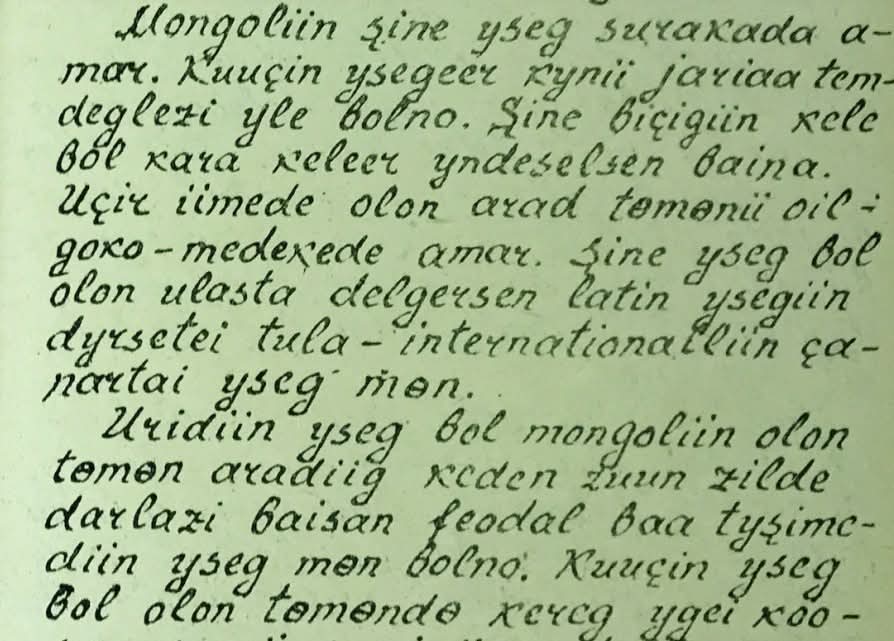 Mongoliin şine yseg surakada a-
mar. Kuuçin ysegeer kynii jariaa tem-
deglezi yle bolno. Şine biçigiin kele
bol kara keleer yndeselsen baina.
Uçir iimede olon arad tөmөnii oil-
goko-medekede amar. Şine yseg bol
olon ulasta delgersen latin ysegiin
dyrsetei tula-internationalliin ça-
nartai yseg mөn.
Uridiin yseg bol mongoliin olon
tөmөn aradiig keden zuun zilde
darlazi baisan feodal baa tyşime-
diin yseg mөn bolno. Kuuçin yseg
bol olon tөmөndө kereg ygei koo-